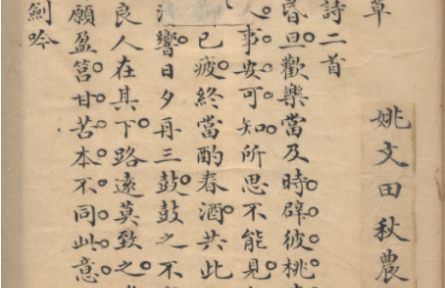 草
姚文田秋農
詩二首
昏旦歡樂當及時辟彼桃
人事安可知所思不能見
已疲終當酌春酒共此
響日夕再三鼓鼓之不
良人在其下路遠莫致之
願盈筥甘苦本不同此意
劍吟